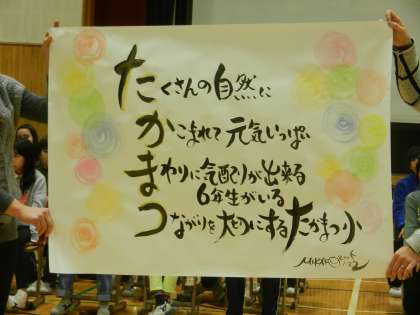 たくさんの自然に
かこまれて 元気いっぱい
まわりに気配りが出来る
6年生がいる
つながりを大切にするたかまつ小